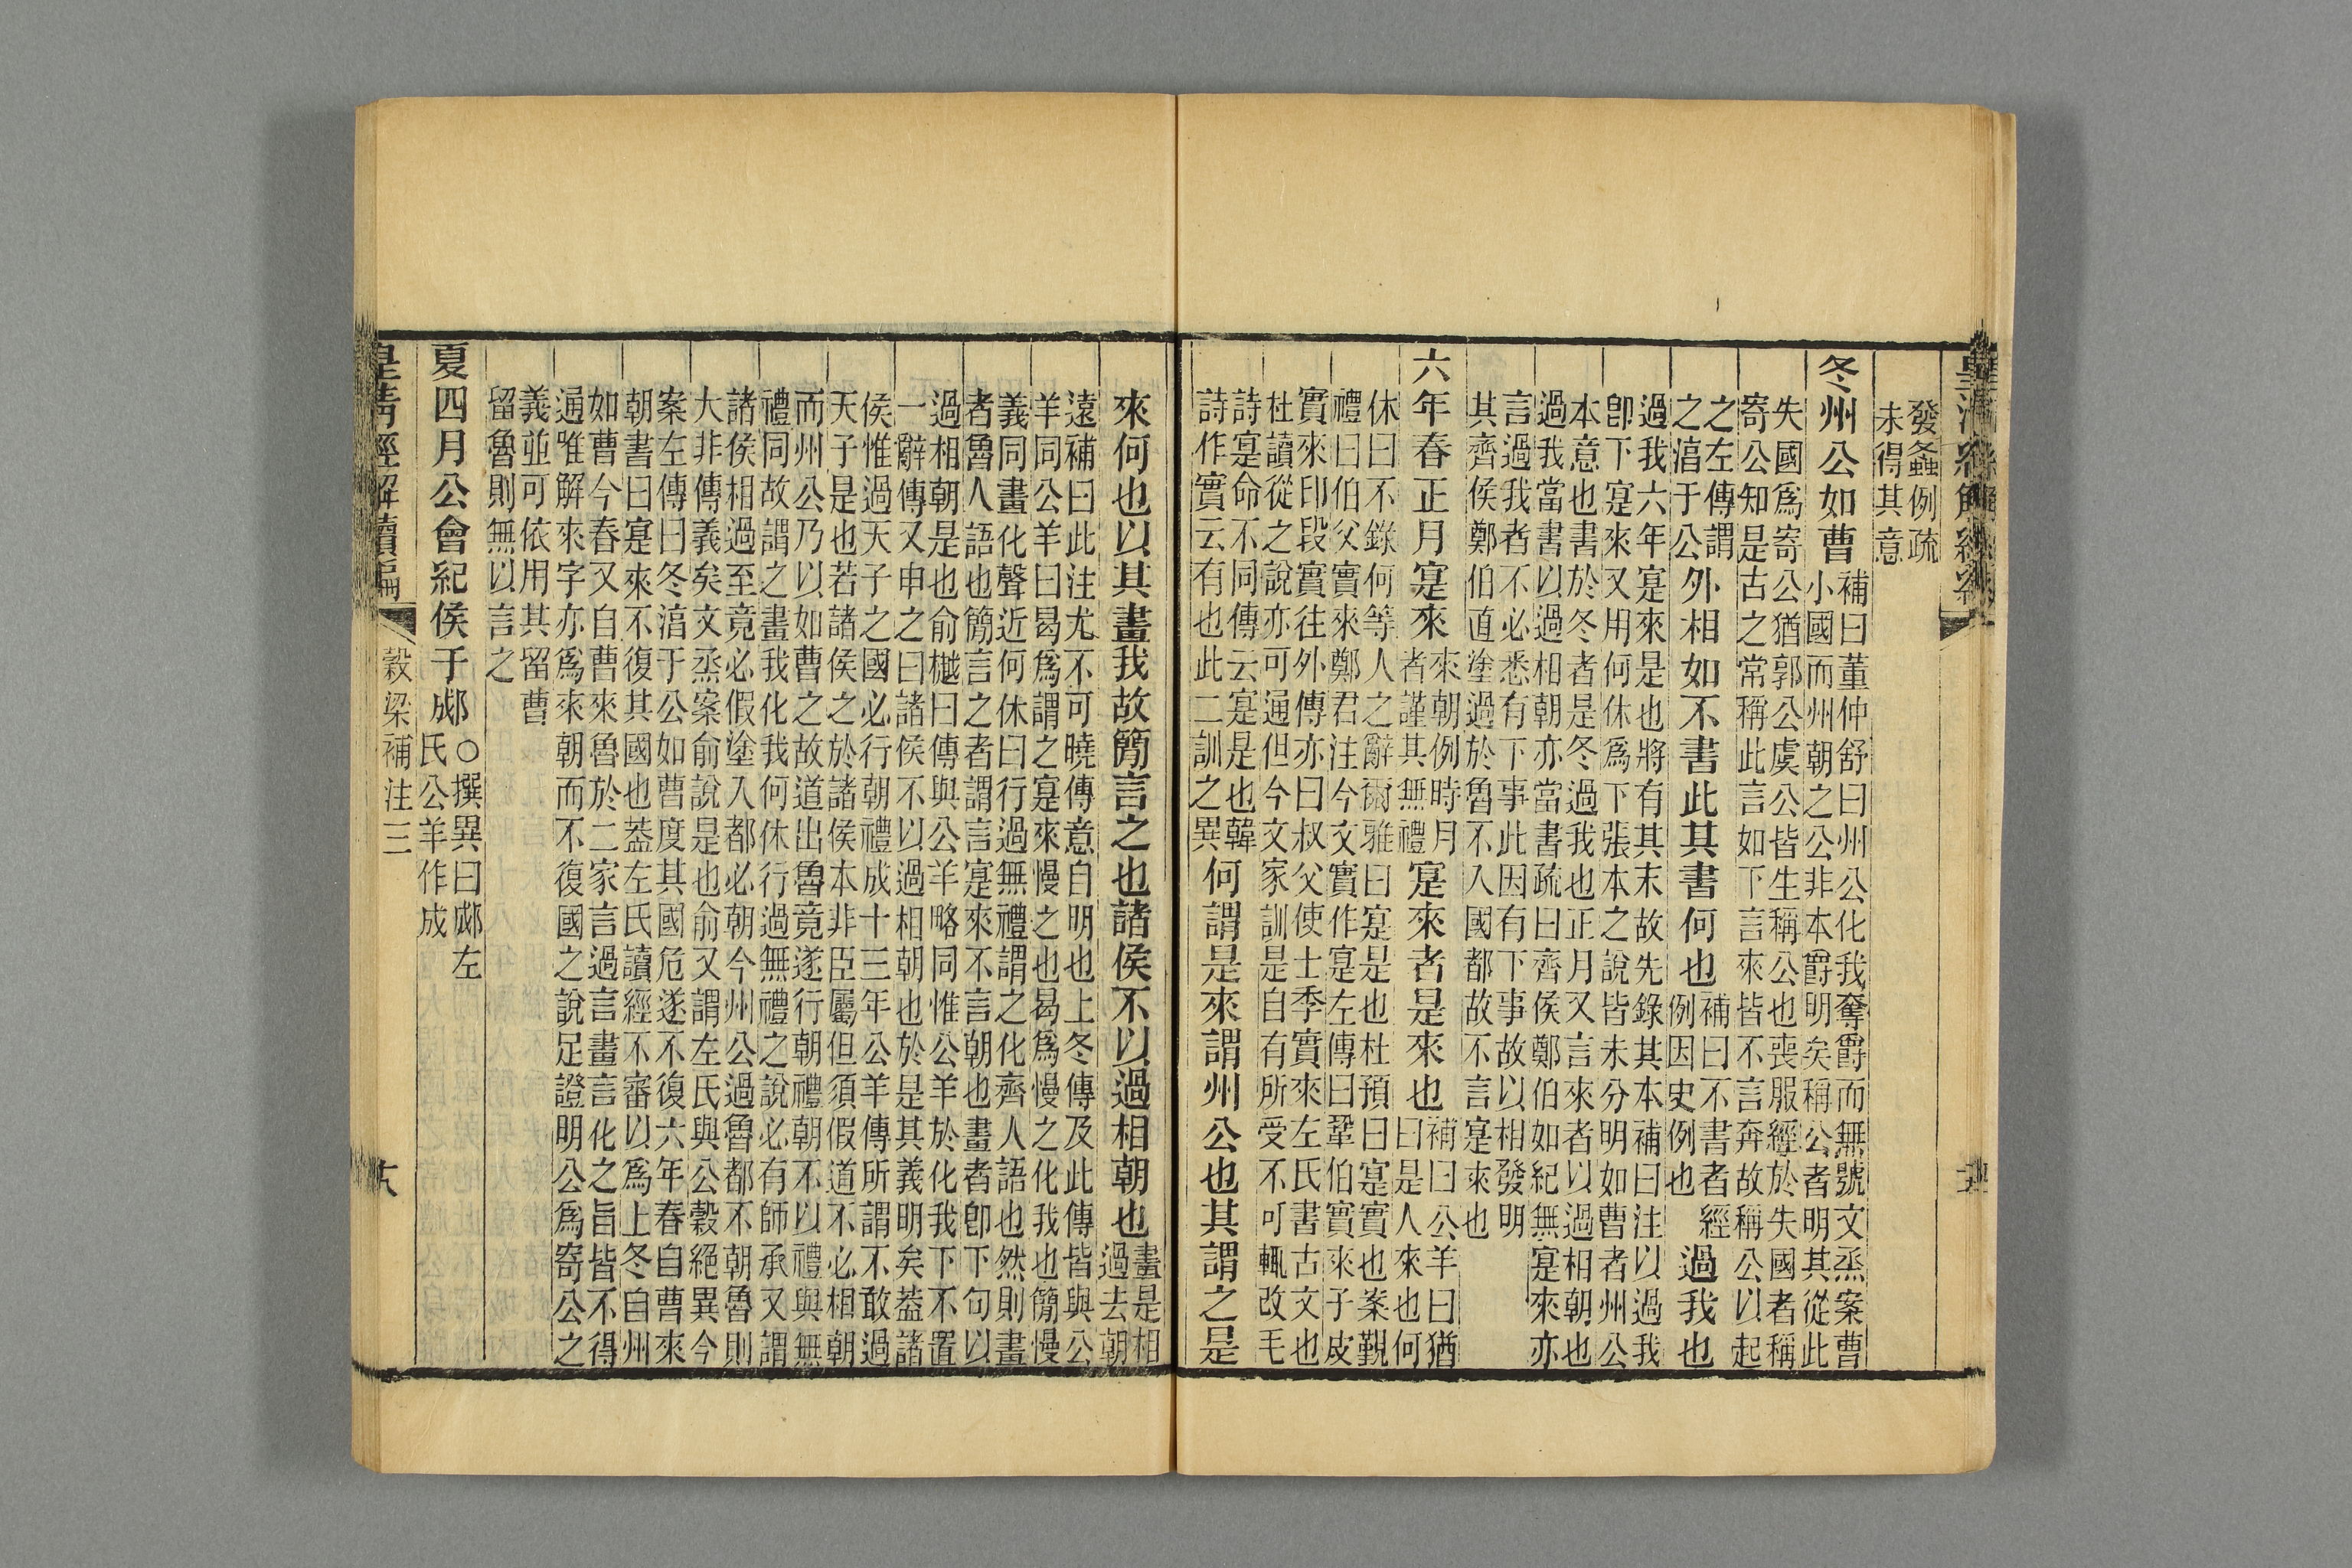 發螽例疏
未得其意
冬州公如曹
補曰董仲舒曰州公化我奪爵而無號文烝案曹
小國而州朝之公非本爵明矣稱公者明其從此
失國爲寄公猶郭公虞公皆生稱公也喪服經於失國者稱
寄公知是古之常稱此言如下言來皆不言奔故稱公以起
之左傳謂
之淯于公
外相如不書此其書何也
補曰不書者經
例因史例也
過我也
過我六年寔來是也將有其末故先錄其本補曰注以過我
卽下寔來又用何休爲下張本之說皆未分明如曹者州公
本意也書於冬者是冬過我也正月又言來者以過相朝也
過我當書以過相朝亦當書疏曰齊侯鄭伯如紀無寔來亦
言過我者不必悉有下事此因有下事故以相發明
其齊侯鄭伯道塗過於魯不入國都故不言寔來也
六年春正月寔來
來朝例時月
者謹其無禮
寔來者是來也
補曰公羊曰猶
曰是人來也何
休曰不錄何等人之辭爾雅曰寔是也杜預曰寔實也案覲
禮曰伯父實來鄭君注今文實作寔左傳曰鞏伯實來子皮
實來印段實往外傳亦曰叔父使士季實來左氏書古文也
杜讀從之說亦可通但今文家訓是自有所受不可輒改毛
詩寔命不同傳云寔是也韓
詩作實云有也此二訓之異
何謂是來謂州公也其謂之是
來何也以其畫我故簡言之也諸侯不以過相朝也
畫是相
過去朝
遠補曰此注尤不可曉傳意自明也上冬傳及此傳皆與公
羊同公羊曰曷爲謂之寔來慢之也曷爲慢之化我也簡慢
義同畫化聲近何休曰行過無禮謂之化齊人語也然則畫
者魯人語也簡言之者謂言寔來不言朝也畫者卽下句以
過相朝是也俞樾曰傳與公羊略同惟公羊於化我下不置
一辭傳又申之曰諸侯不以過相朝也於是其義明矣葢諸
侯惟過天子之國必行朝禮成十三年公羊傳所謂不敢過
天子是也若諸侯之於諸侯本非臣屬但須假道不必相朝
而州公乃以如曹之故道出魯竟遂行朝禮朝不以禮與無
禮同故謂之畫我化我何休行過無禮之說必有師承又謂
諸侯相過至竟必假塗入都必朝今州公過魯都不朝魯則
大非傳義矣文烝案俞說是也俞又謂左氏與公穀絕異今
案左傳曰冬淯于公如曹度其國危遂不復六年春自曹來
朝書曰寔來不復其國也葢左氏讀經不審以爲上冬自州
如曹今春又自曹來魯於二家言過言畫言化之旨皆不得
通唯解來字亦爲來朝而不復國之說足證明公爲寄公之
義並可依用其留曹
留魯則無以言之
夏四月公會紀侯于郕
○撰異曰郕左
氏公羊作成
皇清經解續編
穀梁補注三